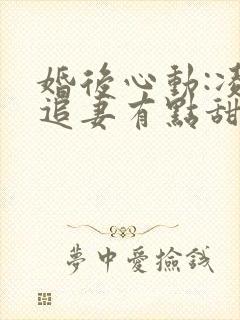 婚後心動:凌
追妻有點甜
夢中愛撿錢